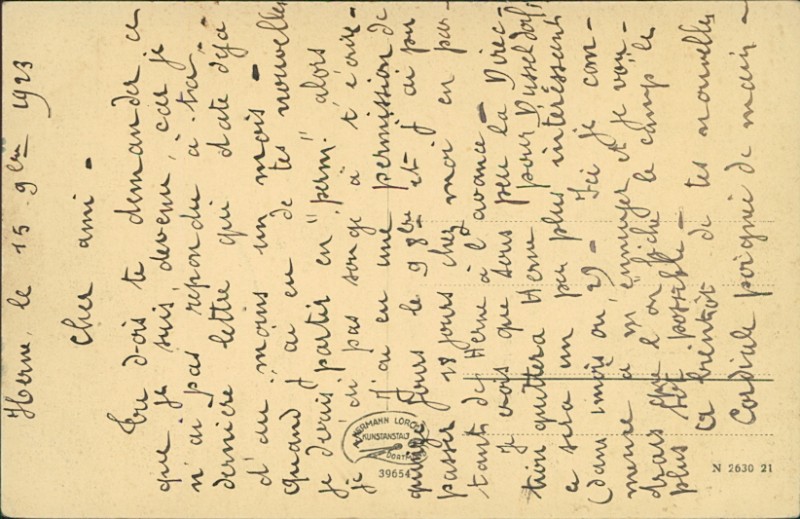 Herne, le 15 9bre 1923
Cher ami -
Tu dois te demander ce
que je suis devenu, car je
n'ai pas répondu à ta
dernière lettre qui date déjà
d'au moins un mois -
Quand j'ai eu de tes nouvelles
je devais partir en "perm." alors
je n'ai pas songé à t'écrire -
J'ai eu une permission de
quinze jours le 9 8bre et j'ai pu
passer 18 jours chez moi en par-
tant de Herne à l'avance -
Je crois que sous peu la Direc-
tion quittera Herne pour Dusseldorf,
ce sera un peu plus intéressant
(dans 1 mois ou 2) - Ici je com-
mence à m'ennuyer et je vou-
drais que l'on fiche le camp le
plus tôt possible -
A bientôt de tes nouvelles
Cordiale poignée de main -
HERMANN LORCH
KUNSTANSTALT
DORTMUND
39654
N 2630 21